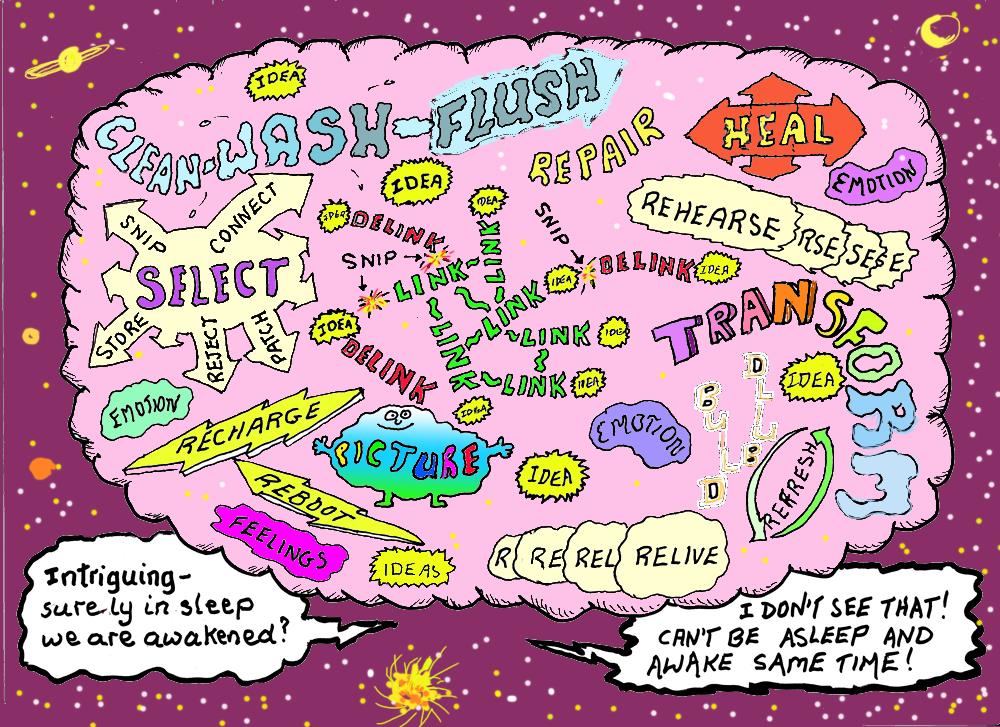 IDEA
CLEAN-WASH-FLUSH
REPAIR
HEAL
EMOTION
IDEA
IDEA
IDEA
SNIP
CONNECT
SELECT
STORE
REJECT
PATCH
DELINK
SNIP
SNIP
DELINK
IDEA
IDEA
LINK
LINK
LINK
LINK
LINK
LINK
IDEA
IDEA
IDEA
DELINK
IDEA
REHEARSE
RSE
SE
SE
E
TRANSFORM
IDEA
BUILD
BUILD
REFRESH
EMOTION
RECHARGE
REBOOT
PICTURE
EMOTION
IDEA
FEELINGS
IDEAS
R
RE
REL
RELIVE
Intriguing-
surely in sleep
we are awakened?
I DON'T SEE THAT!
CAN'T BE ASLEEP AND
AWAKE SAME TIME!